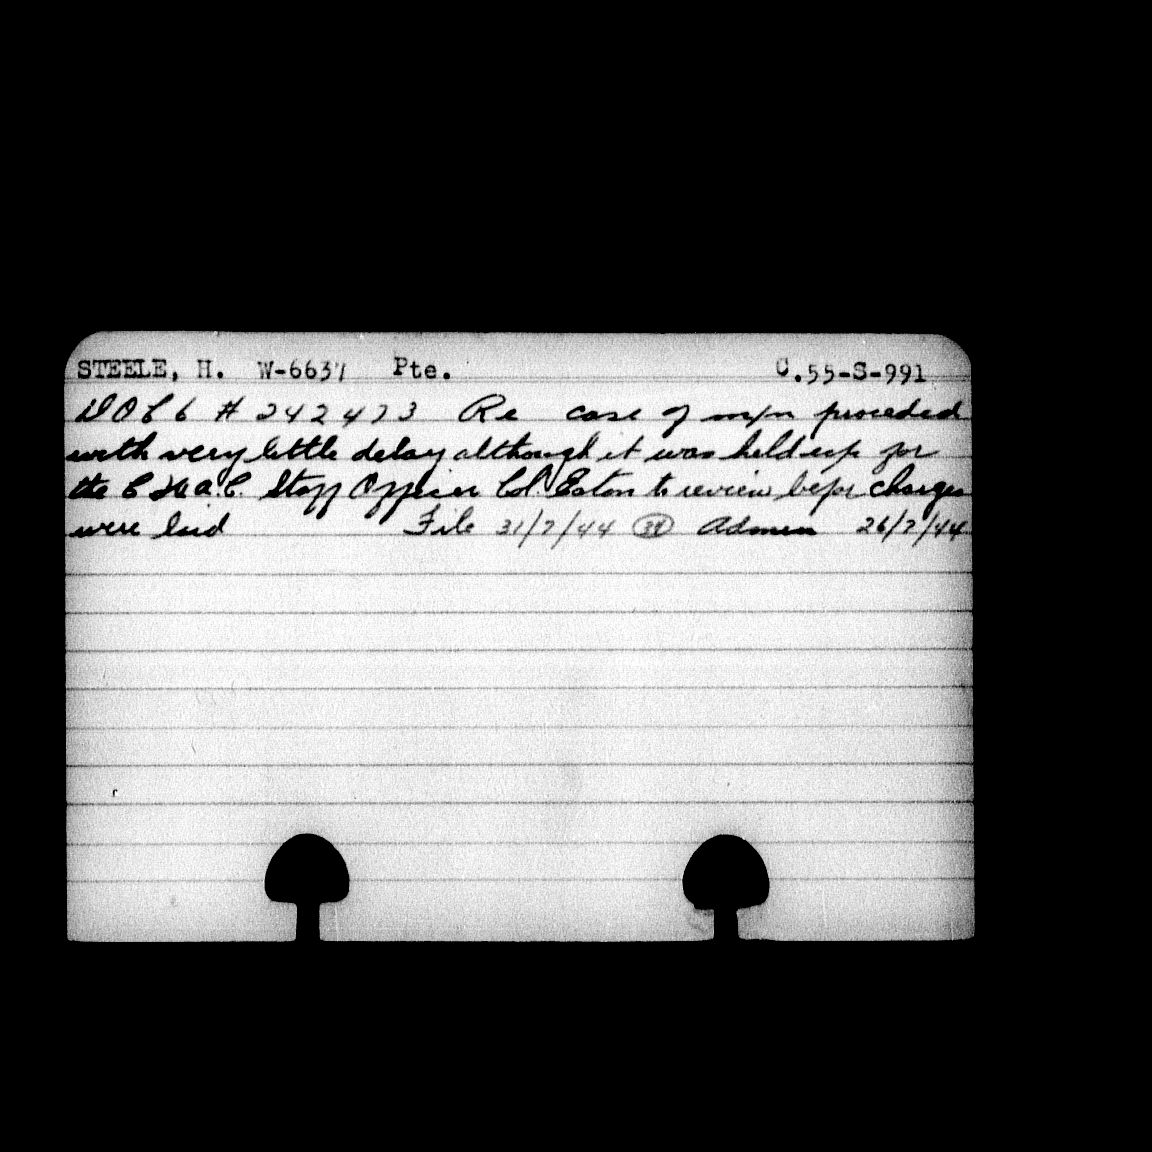 STEELE, H. W-6637 Pte. C.55-S-991
DOC 6 # 242473 Re case of m/m proceded
with very little delay although it was held up for
the C.W.A.C. Staff Officer Col. Eaton to review before charges
were laid File 31/7/44 39 Admin 26/7/44